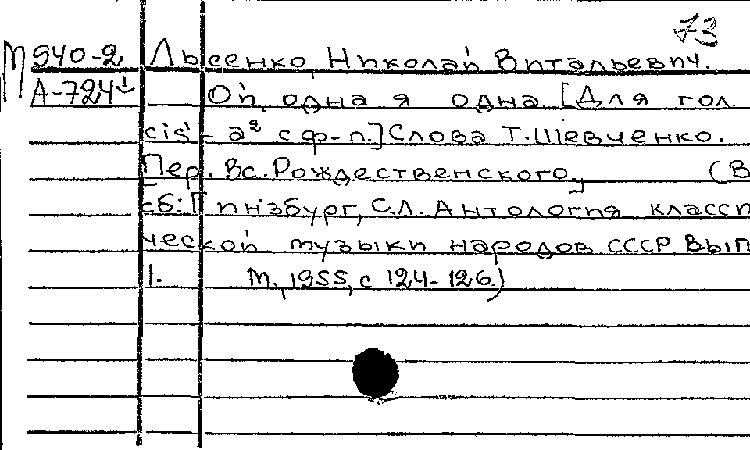 73
М 940-2 Лысенко, Николай Витальевич.
А-724 Ой, одна я одна [Для гол
cis¹ - a² с ф-п.] Слова Т. Шевченко.
Пер. Вс. Рождественского, (В
сб: Гинзбург, С.Л. Антология класси
ческой музыки народов СССР. Вып
1. М., 1955, с 124-126.)